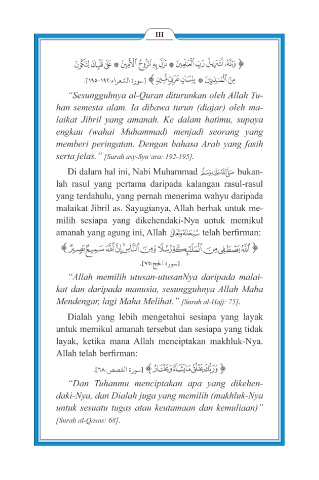 III
﴿ وَإِنَّهُۥ لَتَنزِيلُ رَبِّ ٱلْعَٰلَمِينَ ۞ نَزَلَ بِهِ ٱلرُّوحُ ٱلْأَمِينُ ۞ عَلَىٰ قَلْبِكَ لِتَكُونَ
مِنَ ٱلْمُنذِرِينَ ۞ بِلِسَانٍ عَرَبِيٍّ مُّبِينٍ ﴾ [سورة الشعراء: ١٩٢-١٩٥].
“Sesungguhnya al-Quran diturunkan oleh Allah Tu-
han semesta alam. Ia dibawa turun (diajar) oleh ma-
laikat Jibril yang amanah. Ke dalam hatimu, supaya
engkau (wahai Muhammad) menjadi seorang yang
memberi peringatan. Dengan bahasa Arab yang fasih
serta jelas.” [Surah asy-Syu'ara: 192-195].
Di dalam hal ini, Nabi Muhammad ﷺ bukan-
lah rasul yang pertama daripada kalangan rasul-rasul
yang terdahulu, yang pernah menerima wahyu daripada
malaikat Jibril as. Sayugianya, Allah berhak untuk me-
milih sesiapa yang dikehendaki-Nya untuk memikul
amanah yang agung ini, Allah سُبْحَانَهُ وَتَعَالَى telah berfirman:
﴿ ٱللَّهُ يَصْطَفِى مِنَ ٱلْمَلَٰٓئِكَةِ رُسُلًا وَمِنَ ٱلنَّاسِ إِنَّ ٱللَّهَ سَمِيعٌۢ بَصِيرٌ ﴾
[سورة الحج: ٧٥].
“Allah memilih utusan-utusanNya daripada malai-
kat dan daripada manusia, sesungguhnya Allah Maha
Mendengar, lagi Maha Melihat.” [Surah al-Hajj: 75].
Dialah yang lebih mengetahui sesiapa yang layak
untuk memikul amanah tersebut dan sesiapa yang tidak
layak, ketika mana Allah menciptakan makhluk-Nya.
Allah telah berfirman:
﴿ وَرَبُّكَ يَخْلُقُ مَا يَشَآءُ وَيَخْتَارُ ﴾ [سورة القصص: ٦٨].
“Dan Tuhanmu menciptakan apa yang dikehen-
daki-Nya, dan Dialah juga yang memilih (makhluk-Nya
untuk sesuatu tugas atau keutamaan dan kemuliaan)”
[Surah al-Qasas: 68].